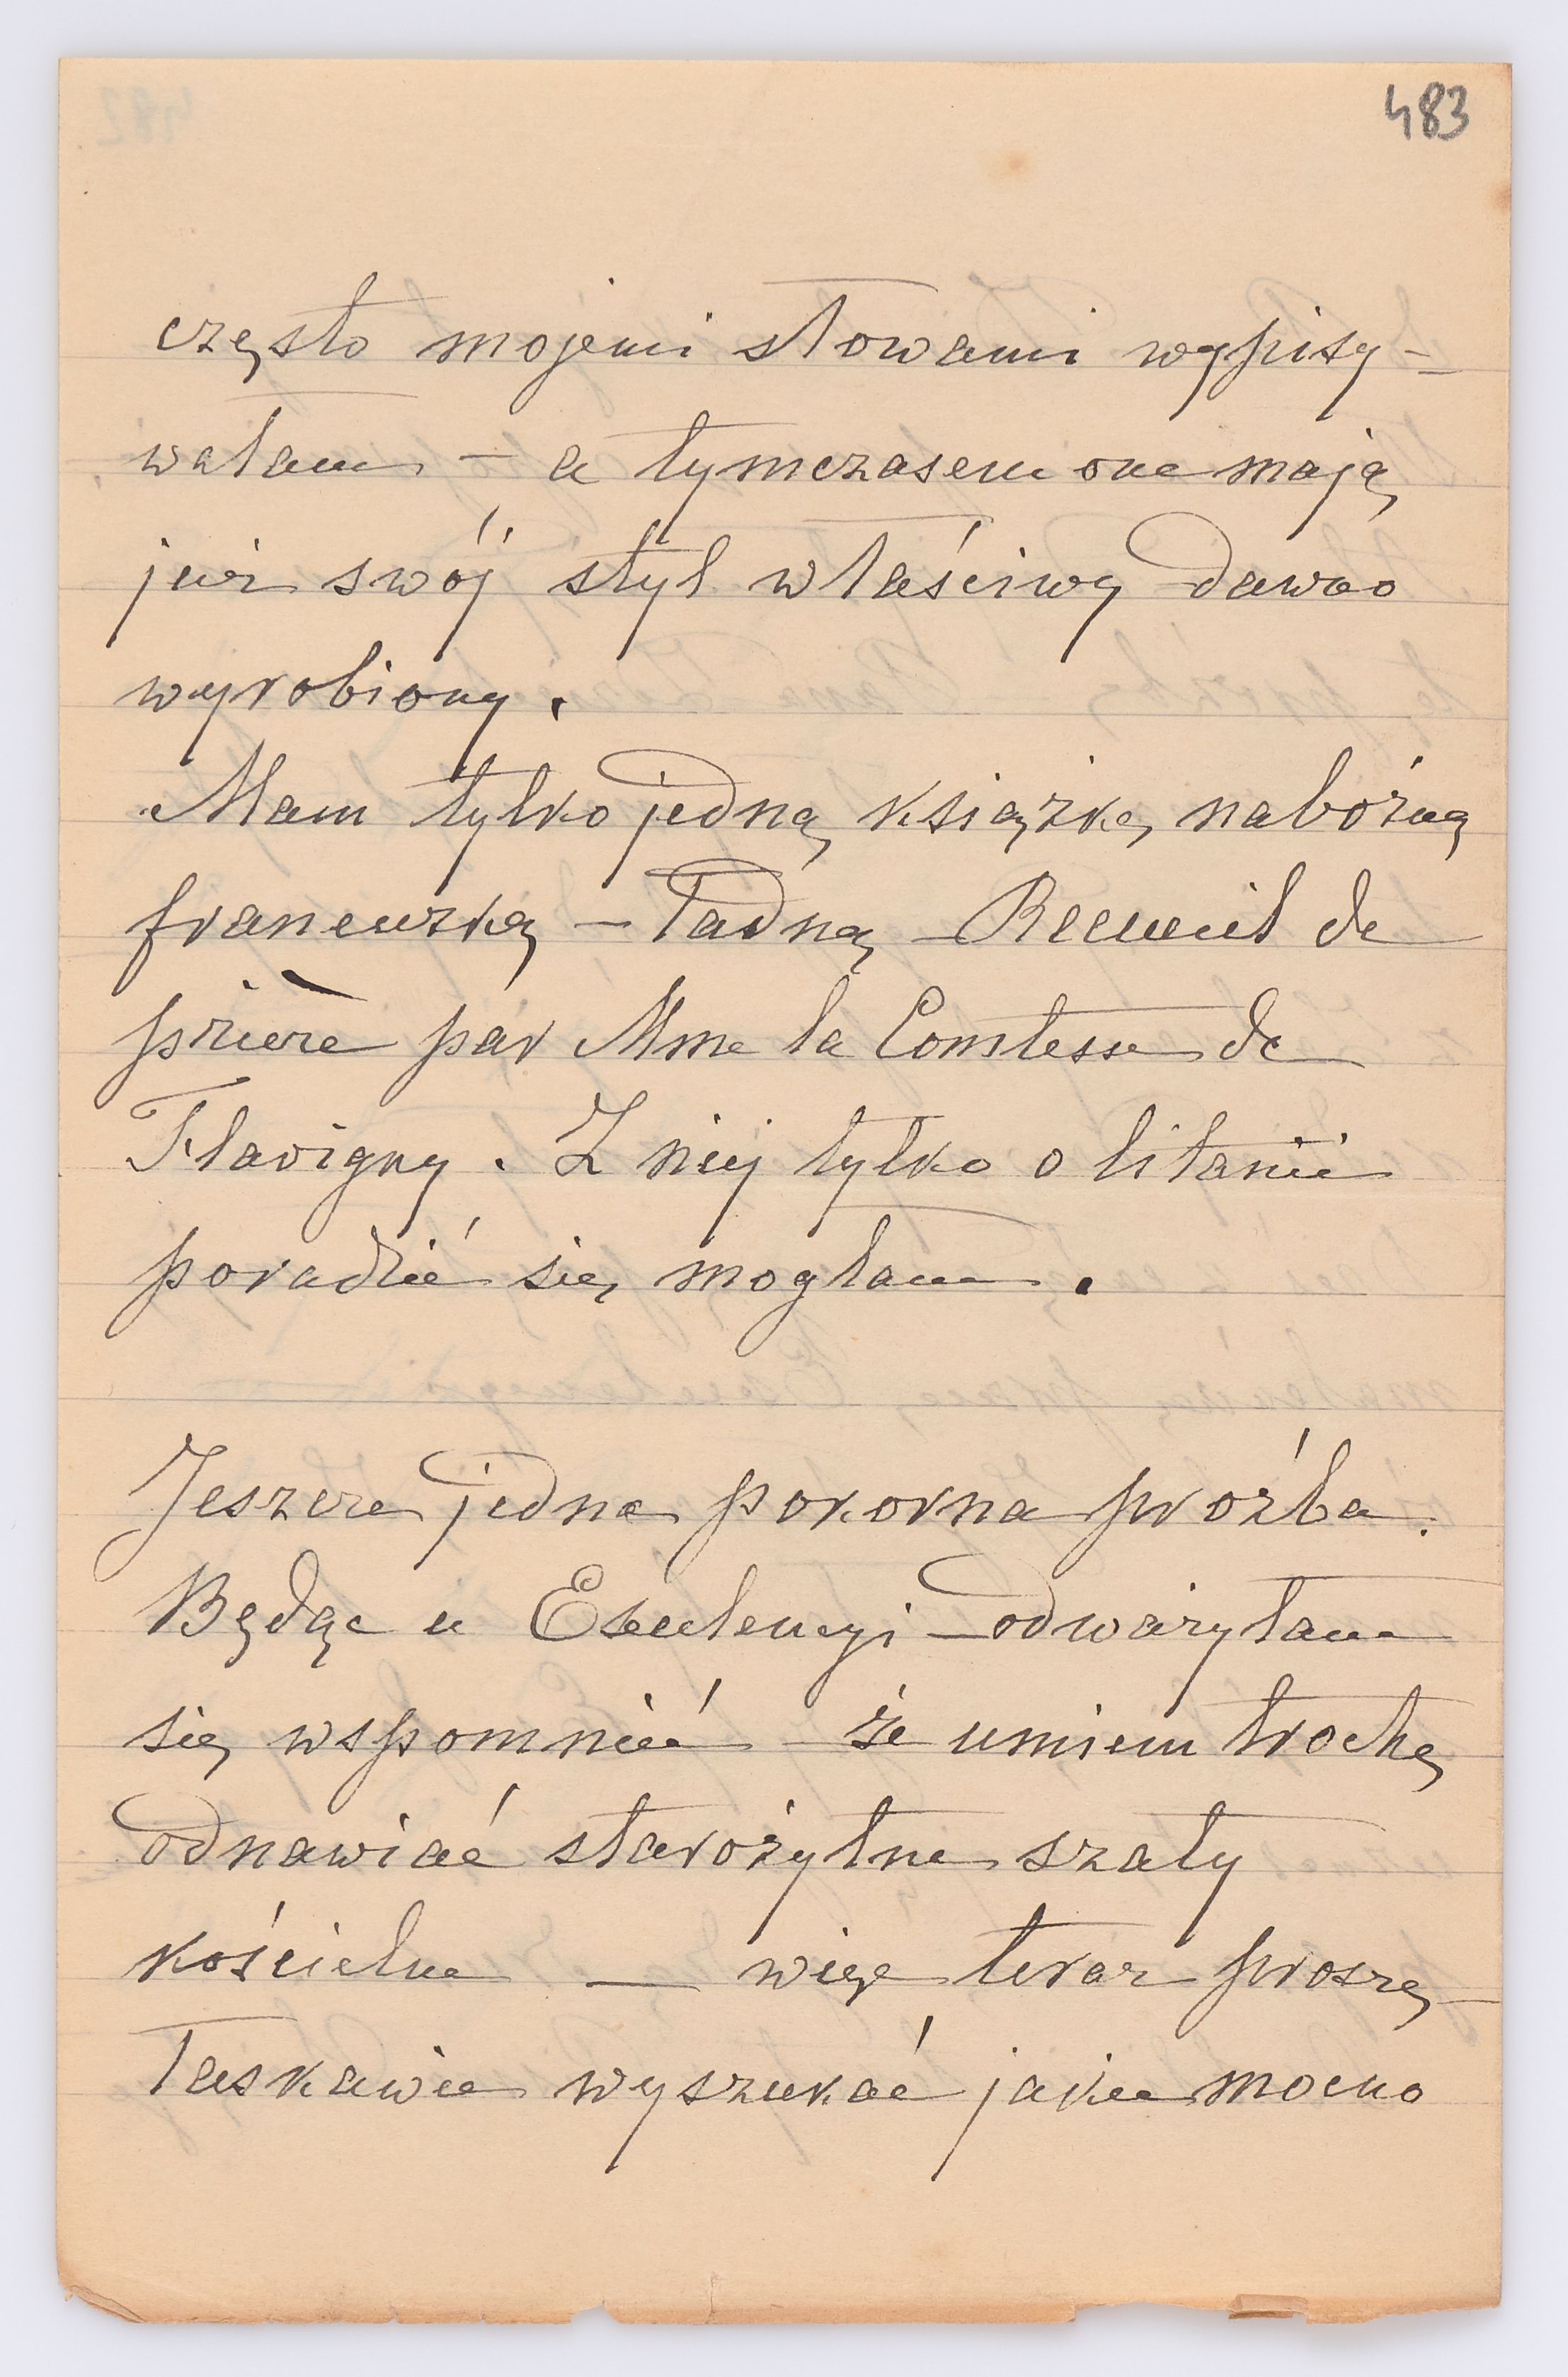 483
często mojemi słowami wypisy-
wałam - a tymczasem one mają
już swój styl właściwy dawno
wyrobiony.
Mam tylko jedną książkę nabożną
francuzką - ładną - Recueil de
prière par Mme la Comtesse de
Flavigny. Z niej tylko o litanie
poradzić się mogłam.
Jeszcze jedna pokorna proźba.
Będąc u Exculencyi - odważyłam
się wspomnieć - że umiem trochę
odnawiać starożytne szaty
kościelne — więc teraz proszę -
łaskawie wyszukać jakie mocno